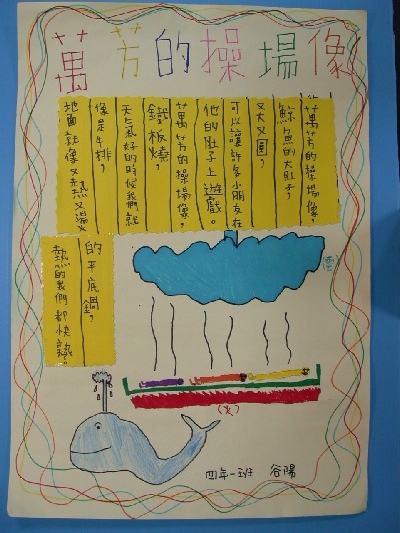 萬芳的操場像
萬芳的操場像,
鯨魚的大肚子,
又大又圓,
可以讓許多小朋友在
他的肚子上遊戲。
萬芳的操場像,
鐵板燒,
天氣好的時候我們就
像是牛排,
地面就像又熱又燙
的平底鍋,
熱的我們都快熟。
(雲)
(火)
四年一班 谷陽